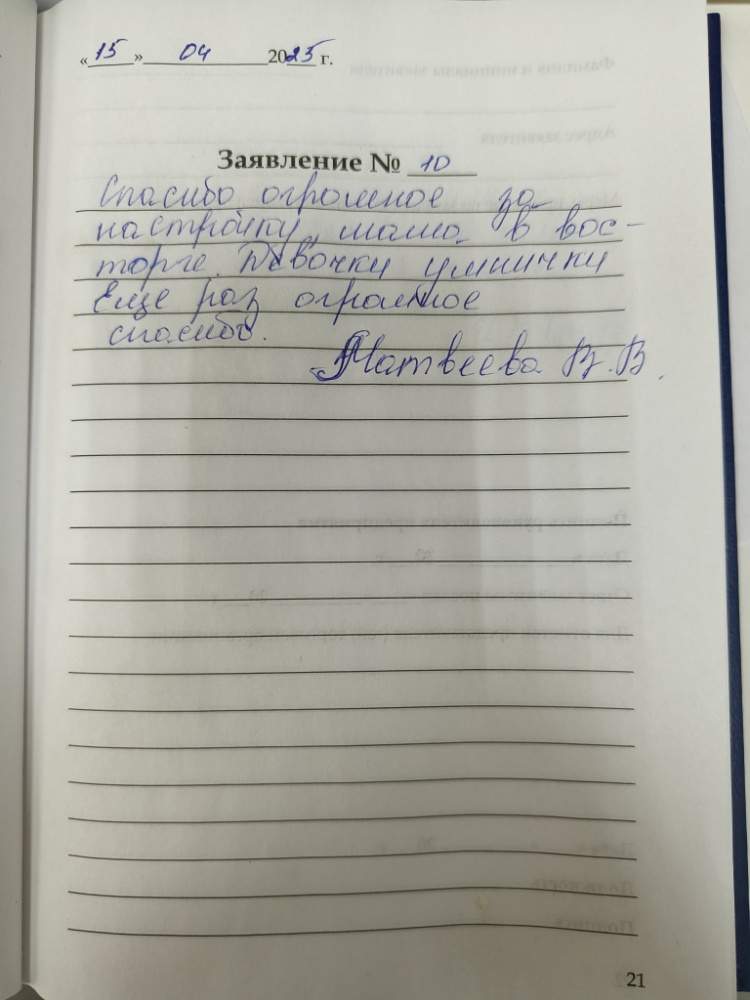 «15» 04 2025 г.
Заявление № 10
Спасибо огромное за
настройку, мама в вос-
торге. Девочки умнички
Еще раз огромное
спасибо.
Матвеева В.В.
21